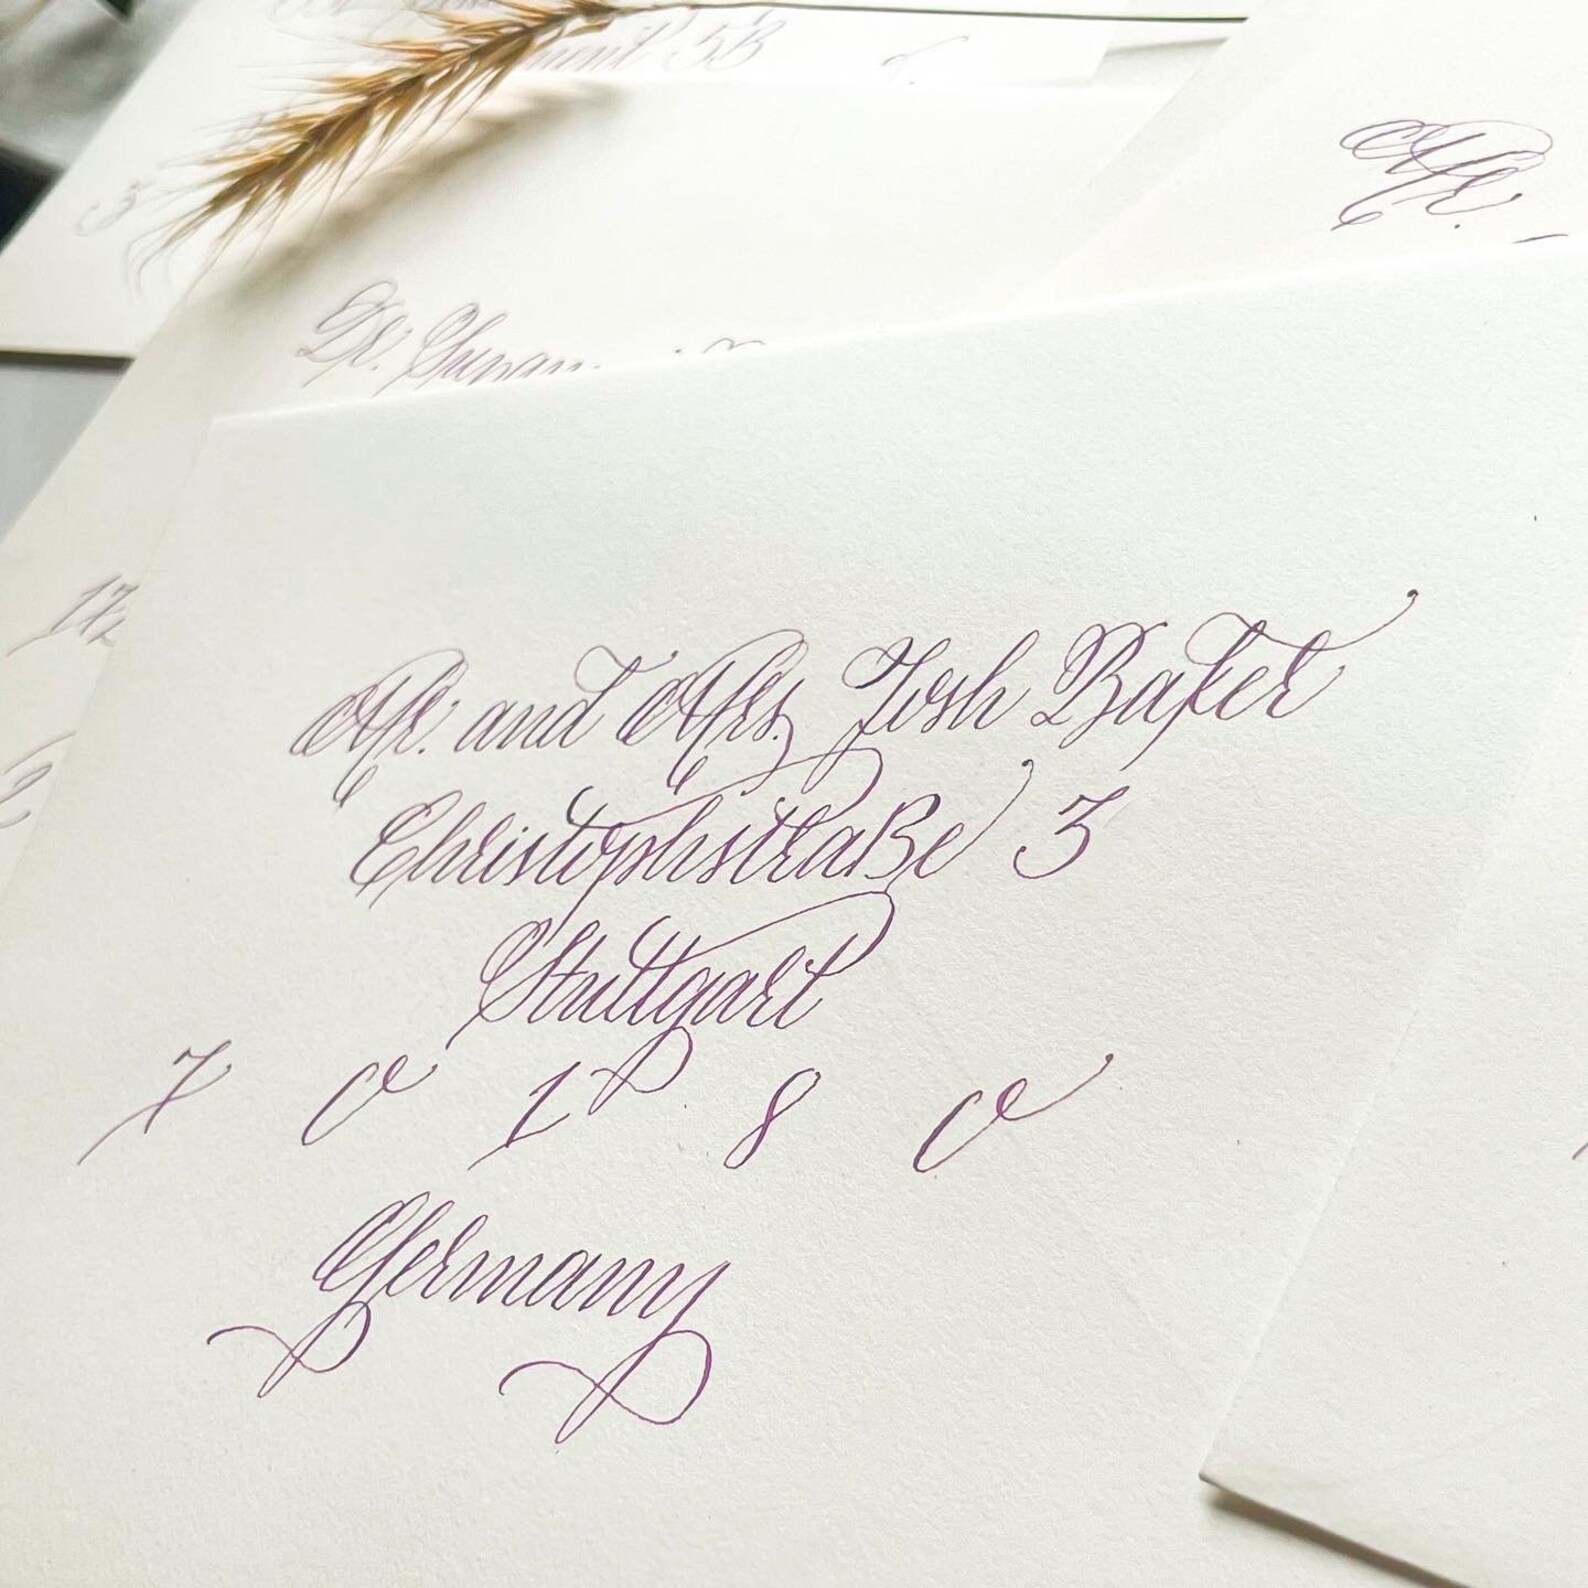 Mr.
Dr.
17
Mr. and Mrs. Josh Baker
Christophstraße 3
Stuttgart
7 0 1 8 0
Germany